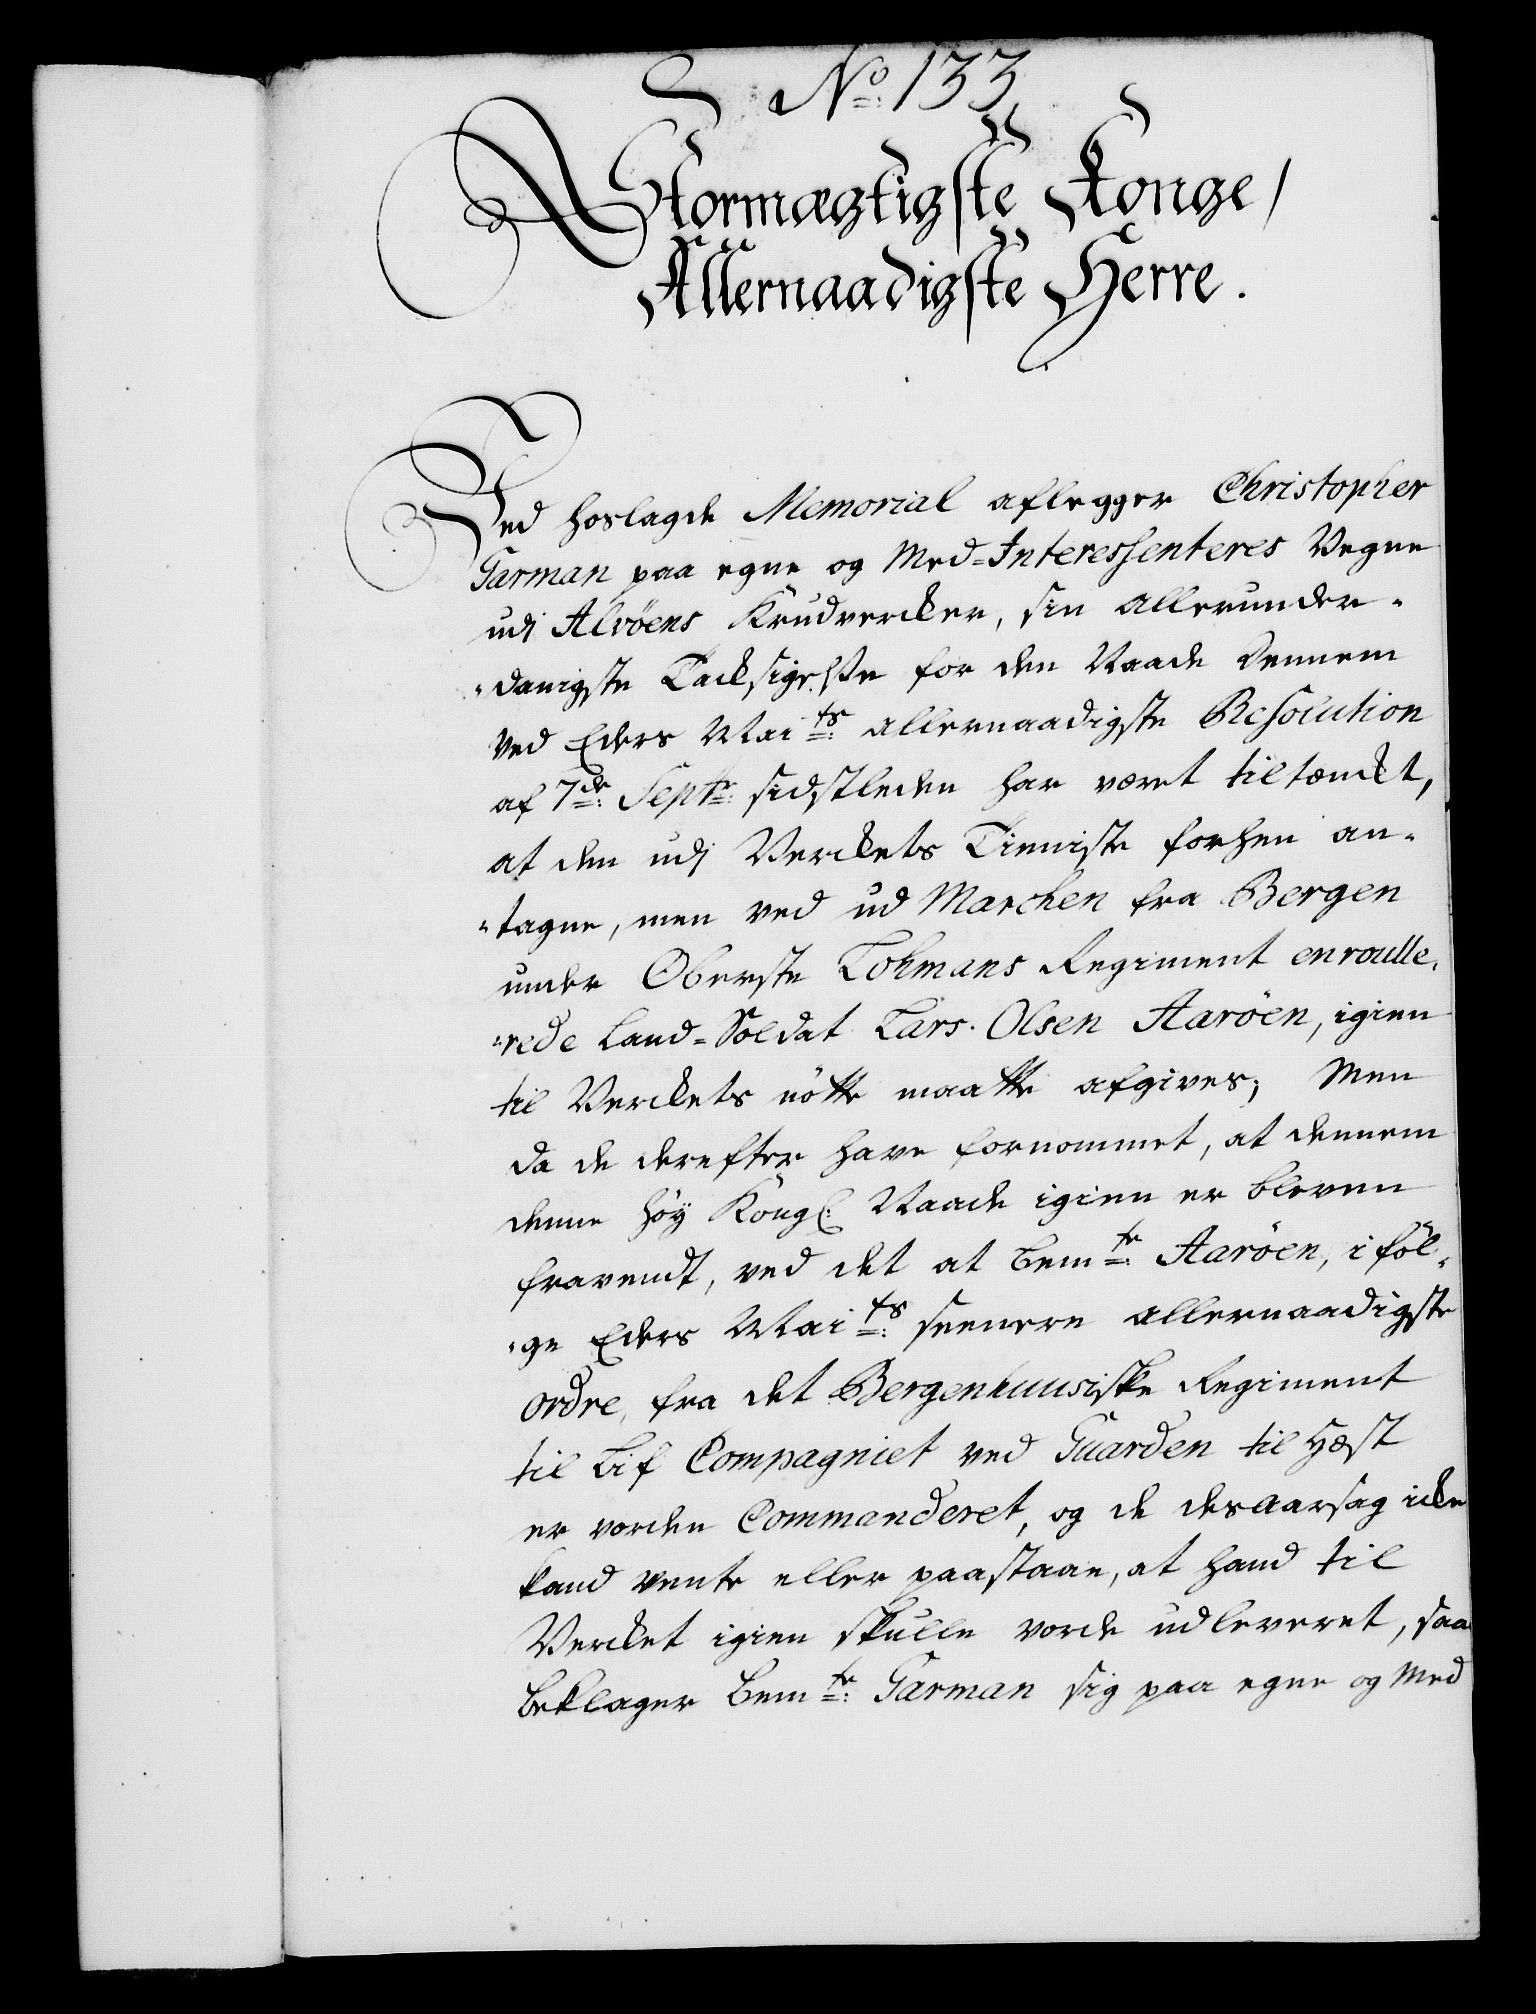 No: 133
Stormægtigste Konge/
Allernaadigste Herre.
Ved hoslagde Memorial aflegger Christopher
Garman paa egne og Med=Interessenteres Vegne
udj Alvöens Krudvercker, sin allerunder-
-danigste Tacksigelse for den Naade dennem
ved Eders Maits: allernaadigste Resolution
af 7de: Septr: sidstleden har været tiltænckt,
at den udj Verckets Tieniste forhen an-
-tagne, men ved ud Marchen fra Bergen
under Oberste Lohmans Regiment enroulle-
-rede Land=Soldat Lars Olsen Aaröen, igien
til Verckets nötte maatte afgives; Men
da de derefter have fornommet, at dennem
denne höy Kongl: Naade igien er bleven
fravendt, ved det at bemte: Aaröen, i föl-
-ge Eders Maits: seenere allernaadigste
ordre, fra det Bergenhuusiske Regiment
til Lif Compagniet ved Guarden til Hæst
er vorden Commanderet, og de desaarsag icke
kand vente eller paastaae, at hand til
Vercket igien skulle vorde udleveret, saa
beklager bemte: Garman sig paa egne og Med